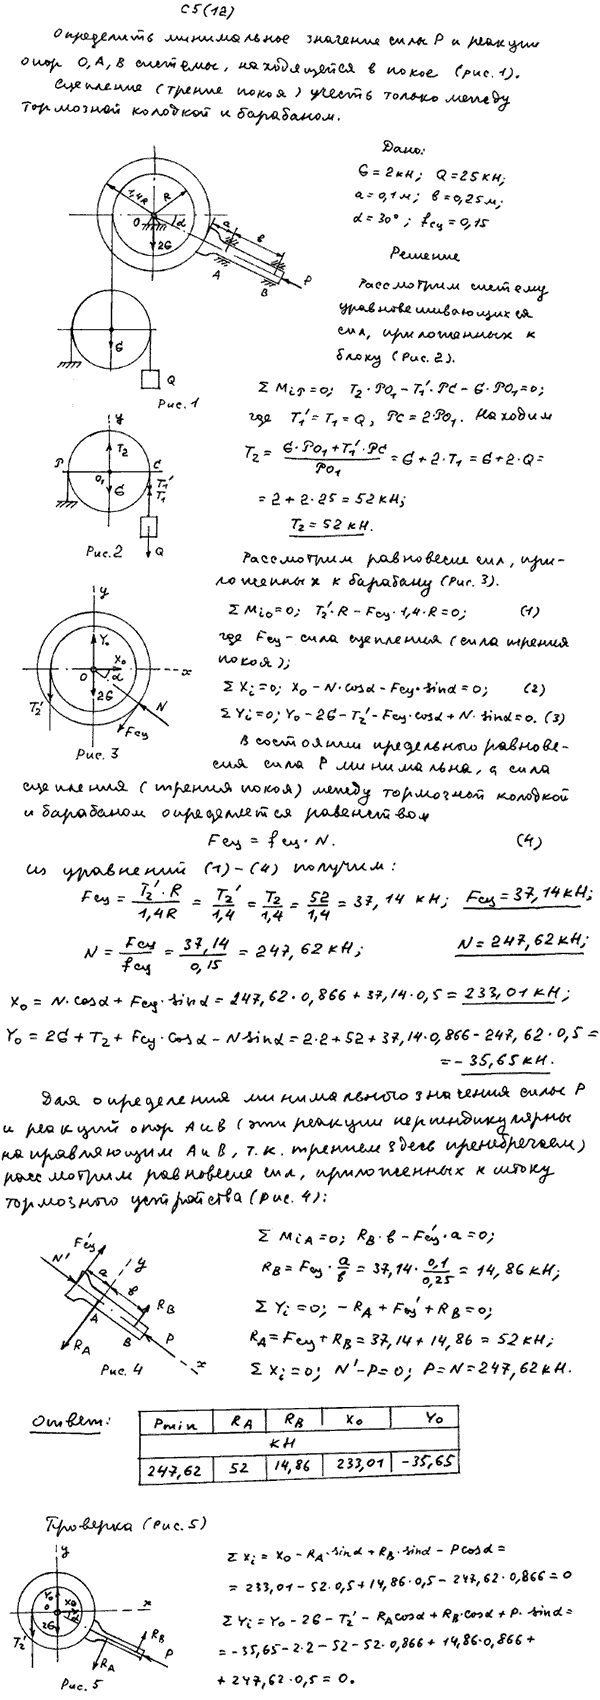 С5(12)
Определить минимальное значение силы P и реакции
опор O, A, B системы, находящейся в покое (рис. 1).
Сцепление (трение покоя) учесть только между
тормозной колодкой и барабаном.
Дано:
G = 2кН; Q = 25кН;
a = 0,1м; b = 0,25м;
α = 30°; fсц = 0,15
Решение
Рассмотрим систему
уравновешивающихся
сил, приложенных к
блоку (Рис. 2).
1,4R R a b
O α 2G A B P
G Q
Рис. 1
Σ MiP = 0; T₂·PO₁ - T₁'·PC - G·PO₁ = 0;
где T₁' = T₁ = Q, PC = 2·PO₁. Находим
T₂ = (G·PO₁ + T₁'·PC)/PO₁ = G + 2·T₁ = G + 2·Q =
= 2 + 2·25 = 52 кН;
T₂ = 52 кН.
y T₂ P O₁ C G T₁' T₁ Q
Рис. 2
Рассмотрим равновесие сил, при-
ложенных к барабану (Рис. 3).
Σ Mio = 0; T₂'·R - Fсц·1,4·R = 0; (1)
где Fсц - сила сцепления (сила трения
покоя);
Σ Xi = 0; X₀ - N·cosα - Fсц·sinα = 0; (2)
Σ Yi = 0; Y₀ - 2G - T₂' - Fсц·cosα + N·sinα = 0. (3)
y Y₀ X₀ x O α 2G T₂' N Fсц
Рис. 3
В состоянии предельного равнове-
сия сила P минимальна, а сила
сцепления (трения покоя) между тормозной колодкой
и барабаном определяется равенством
Fсц = fсц·N. (4)
Из уравнений (1)-(4) получим:
Fсц = T₂'·R/1,4R = T₂'/1,4 = T₂/1,4 = 52/1,4 = 37,14 кН; Fсц = 37,14кН;
N = Fсц/fсц = 37,14/0,15 = 247,62 кН; N = 247,62 кН;
X₀ = N·cosα + Fсц·sinα = 247,62·0,866 + 37,14·0,5 = 233,01 кН;
Y₀ = 2G + T₂ + Fсц·cosα - N sinα = 2·2 + 52 + 37,14·0,866 - 247,62·0,5 =
= - 35,65 кН.
Для определения минимального значения силы P
и реакций опор A и B (эти реакции перпендикулярны
направляющим A и B, т.к. трением здесь пренебрегаем)
рассмотрим равновесие сил, приложенных к штоку
тормозного устройства (рис. 4):
Fсц' N' a y b RB A B P RA x
Рис. 4
Σ MiA = 0; RB·b - Fсц'·a = 0;
RB = Fсц·a/b = 37,14·0,1/0,25 = 14,86 кН;
Σ Yi = 0; -RA + Fсц' + RB = 0;
RA = Fсц + RB = 37,14 + 14,86 = 52 кН;
Σ Xi = 0; N' - P = 0; P = N = 247,62 кН.
Ответ:
Pmin RA RB X₀ Y₀
кН
247,62 52 14,86 233,01 -35,65
Проверка (Рис. 5)
y Y₀ X₀ x O α 2G T₂' RB P RA
Рис. 5
Σ Xi = X₀ - RA·sinα + RB·sinα - P cosα =
= 233,01 - 52·0,5 + 14,86·0,5 - 247,62·0,866 = 0
Σ Yi = Y₀ - 2G - T₂' - RA cosα + RB·cosα + P·sinα =
= - 35,65 - 2·2 - 52 - 52·0,866 + 14,86·0,866 +
+ 247,62·0,5 = 0.